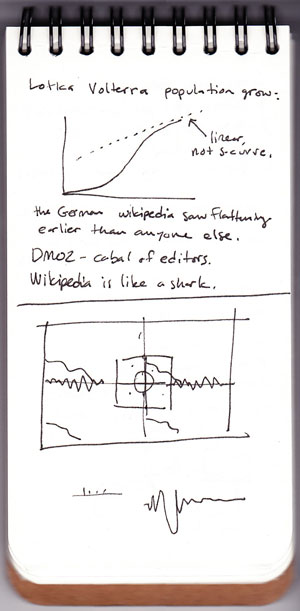 Lotka Volterra population grow:
linear,
not s-curve.
the German wikipedia saw flattening
earlier than anyone else.
DMOZ - cabal of editors.
Wikipedia is like a shark.